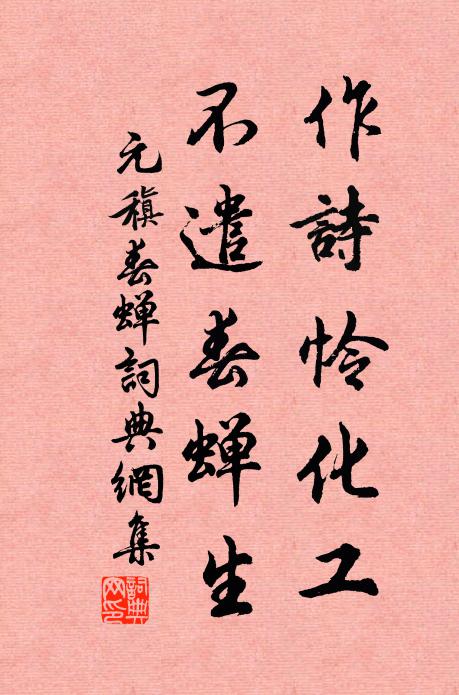 作詩怜化工
不遣春蝉生
元稹春蝉詞典網集
詞典网印